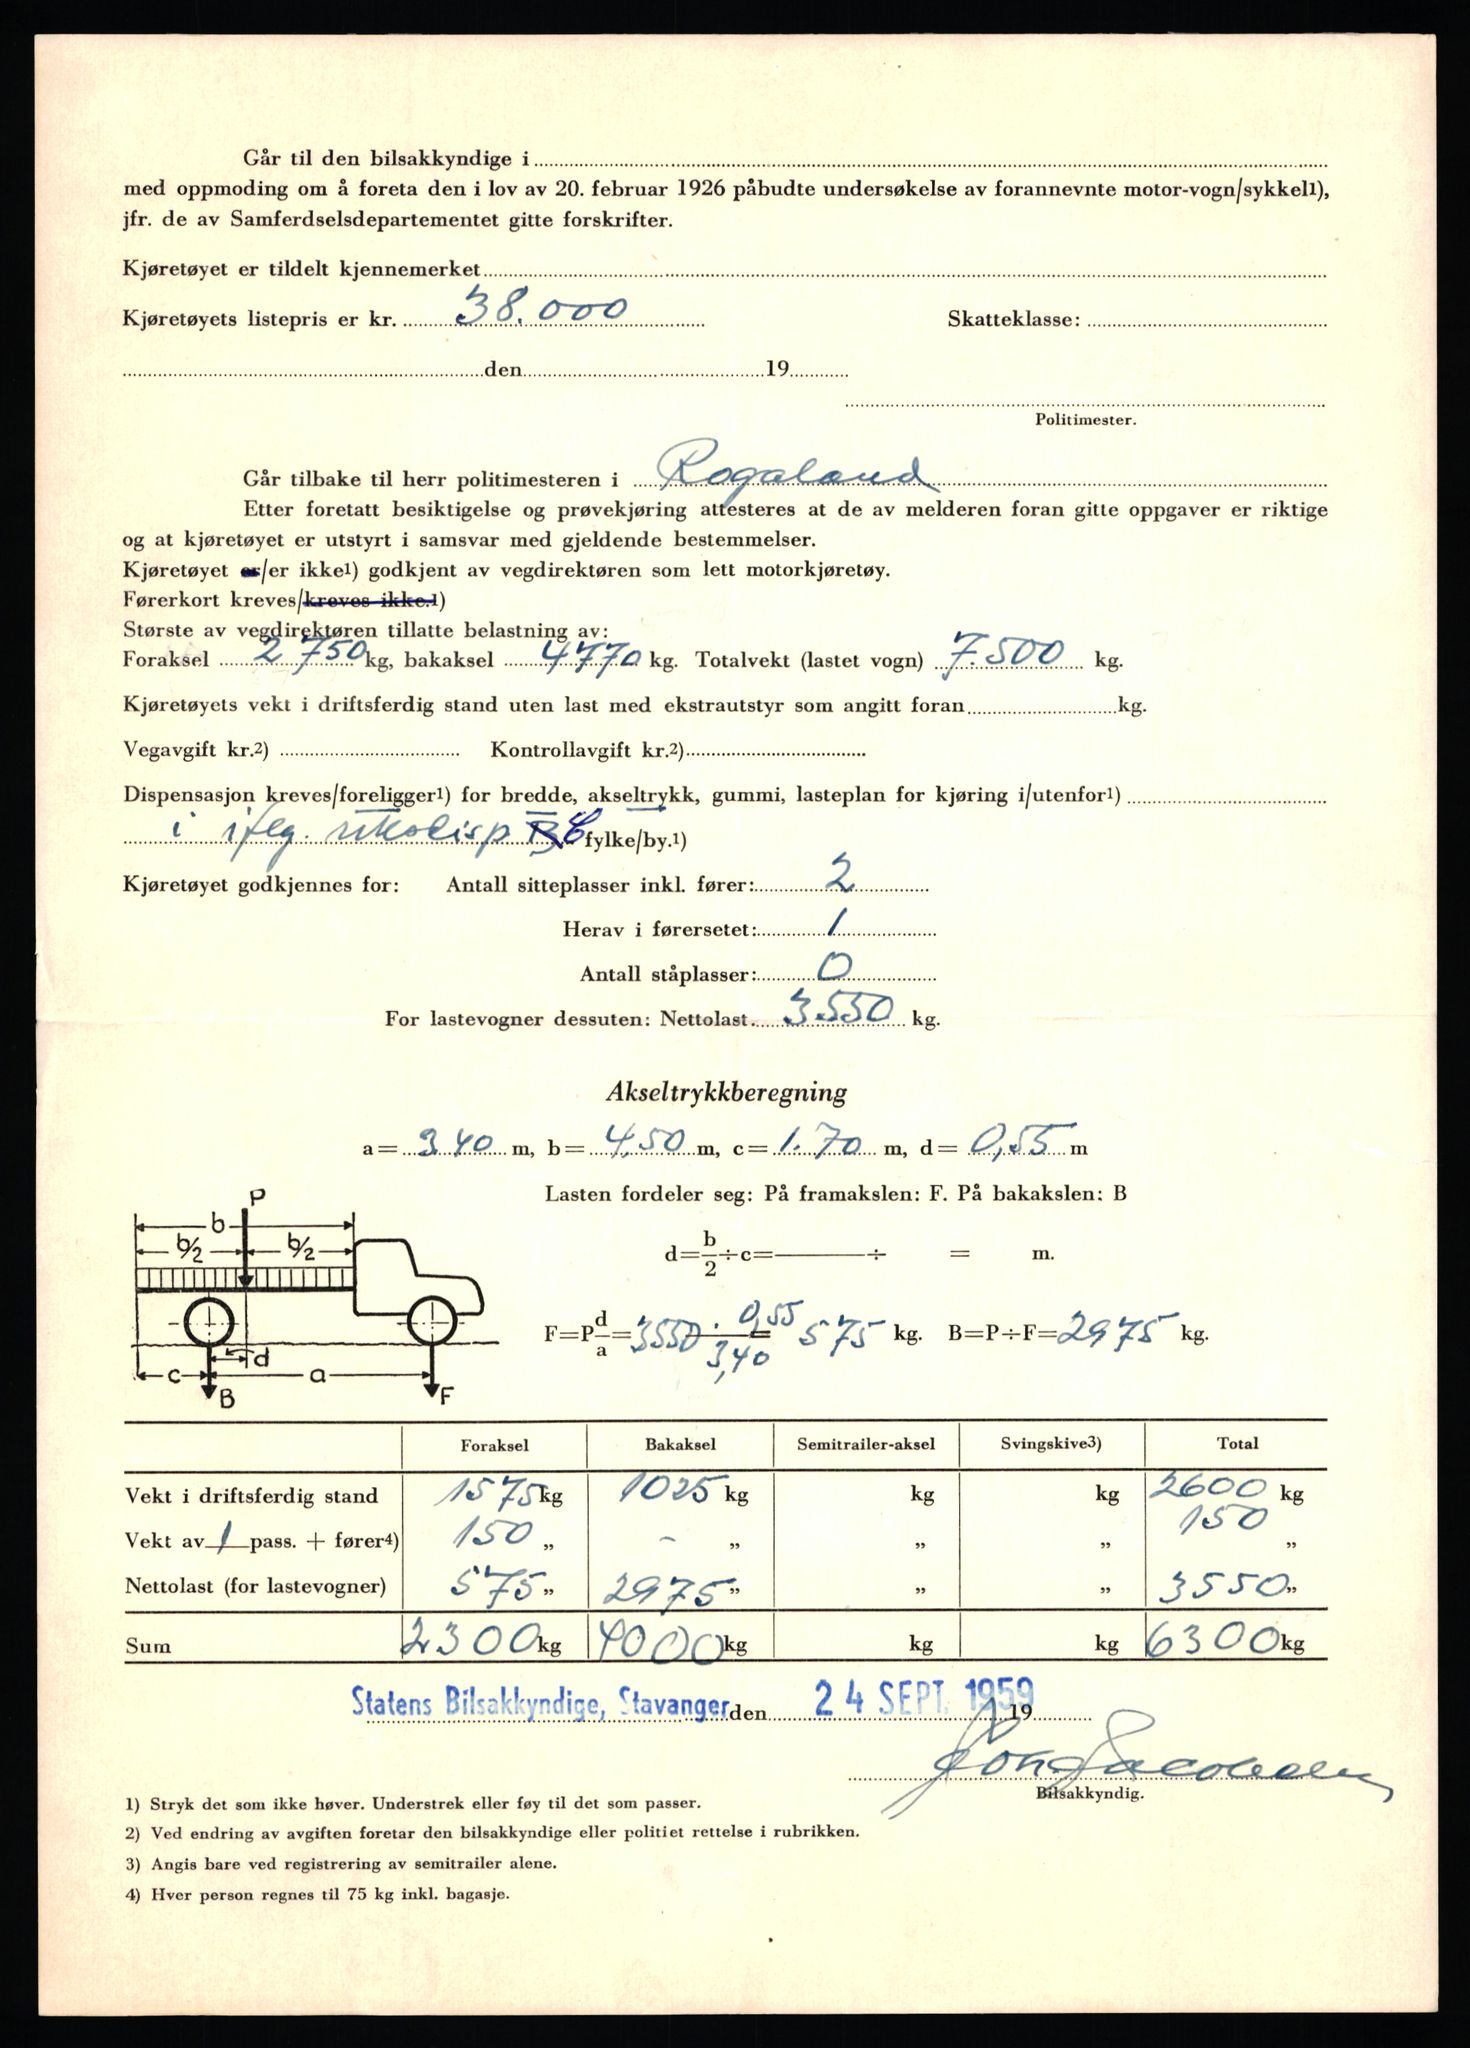 Går til den bilsakkyndige i
med oppmoding om å foreta den i lov av 20. februar 1926 påbudte undersøkelse av forannevnte motor-vogn/sykkel1),
jfr. de av Samferdselsdepartementet gitte forskrifter.
Kjøretøyet er tildelt kjennemerket
Kjøretøyets listepris er kr. 38.000 Skatteklasse:
den 19
Politimester.
Går tilbake til herr politimesteren i Rogaland
Etter foretatt besiktigelse og prøvekjøring attesteres at de av melderen foran gitte oppgaver er riktige
og at kjøretøyet er utstyrt i samsvar med gjeldende bestemmelser.
Kjøretøyet er/er ikke1) godkjent av vegdirektøren som lett motorkjøretøy.
Førerkort kreves/kreves ikke.1)
Største av vegdirektøren tillatte belastning av:
Foraksel 2750 kg, bakaksel 4770 kg. Totalvekt (lastet vogn) 7.500 kg.
Kjøretøyets vekt i driftsferdig stand uten last med ekstrautstyr som angitt foran kg.
Vegavgift kr.2) Kontrollavgift kr.2)
Dispensasjon kreves/foreligger1) for bredde, akseltrykk, gummi, lasteplan for kjøring i/utenfor1)
i iflg. fylke/by.1)
Kjøretøyet godkjennes for: Antall sitteplasser inkl. fører: 2
Herav i førersetet: 1
Antall ståplasser: 0
For lastevogner dessuten: Nettolast. 3550 kg.
Akseltrykkberegning
a= 3.40 m, b= 4,50 m, c= 1.70 m, d= 0,55 m
Lasten fordeler seg: På framakslen: F. På bakakslen: B
P
b
b/2 b/2
d= b/2 ÷c= ÷ = m.
F=P d/a = 3550 · 0,55 / 3,40 = 575 kg. B=P÷F= 2975 kg.
d
c a
B F
Foraksel Bakaksel Semitrailer-aksel Svingskive3) Total
Vekt i driftsferdig stand 1575 kg 1025 kg kg kg 2600 kg
Vekt av 1 pass. + fører4) 150 „ - „ „ „ 150 „
Nettolast (for lastevogner) 575 „ 2975 „ „ „ 3550 „
Sum 2300 kg 4000 kg kg kg 6300 kg
Statens Bilsakkyndige, Stavanger den 24 SEPT. 1959 19
Bilsakkyndig.
1) Stryk det som ikke høver. Understrek eller føy til det som passer.
2) Ved endring av avgiften foretar den bilsakkyndige eller politiet rettelse i rubrikken.
3) Angis bare ved registrering av semitrailer alene.
4) Hver person regnes til 75 kg inkl. bagasje.